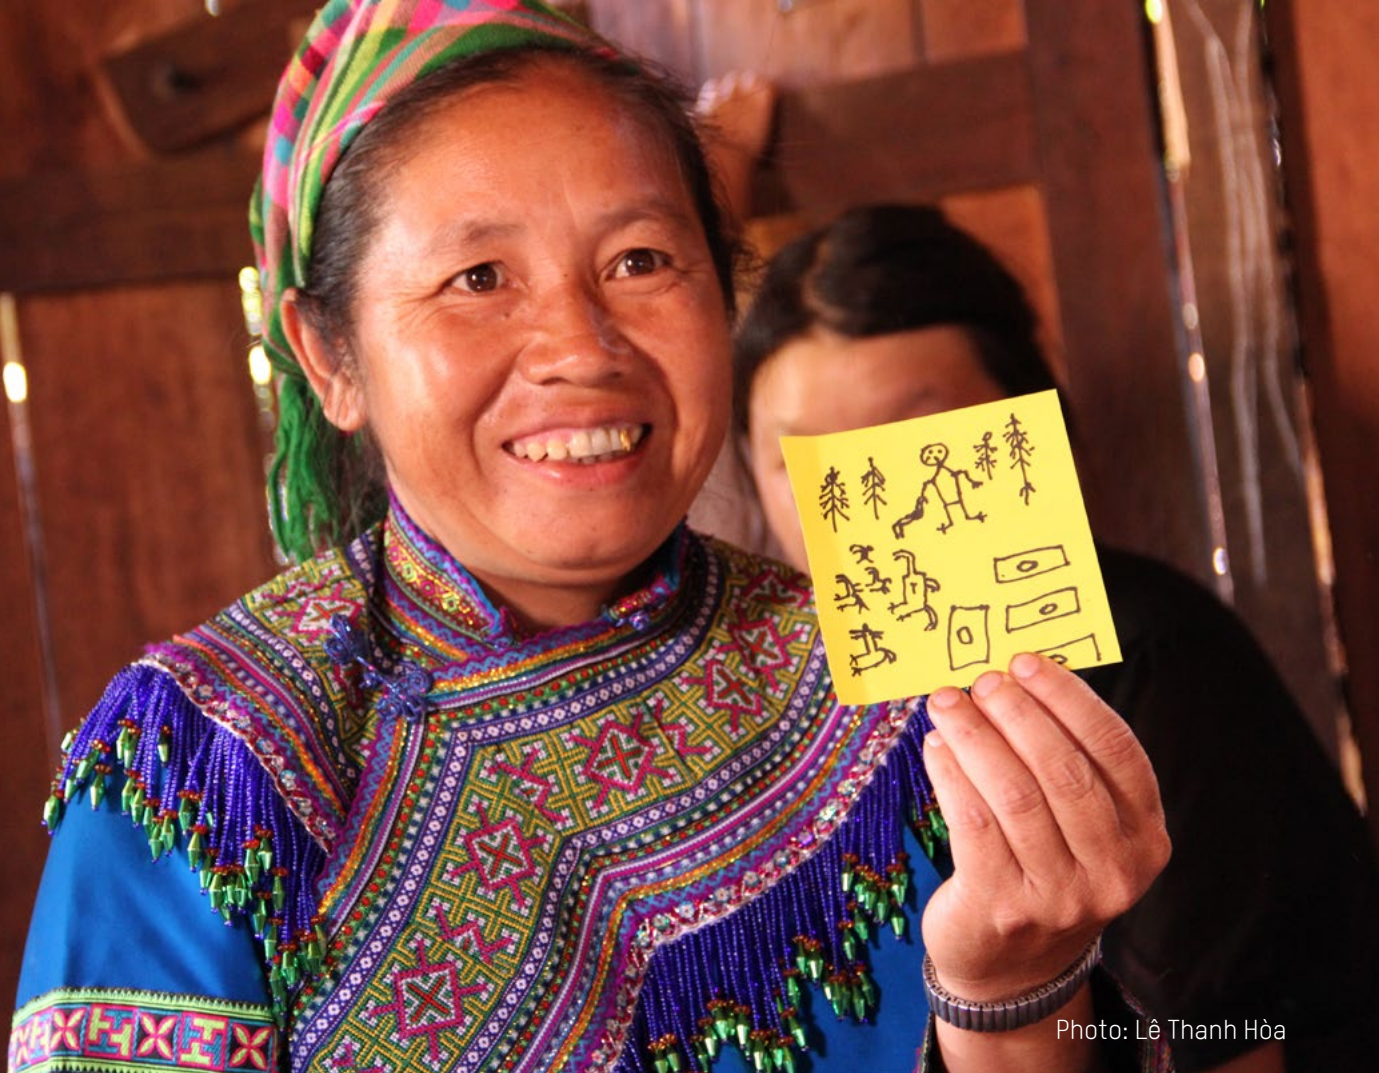 Photo: Lê Thanh Hòa